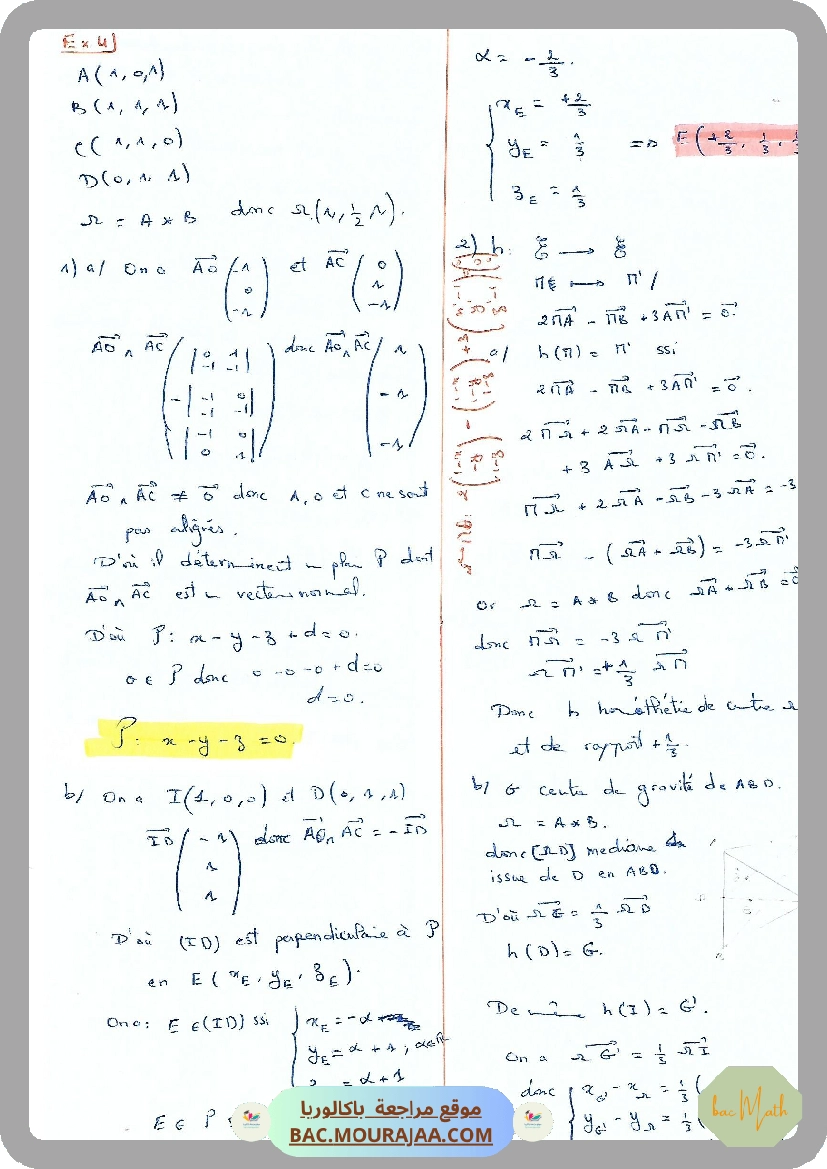 Ex 4)
A(1,0,1)
B(1,1,1)
C(1,1,0)
D(0,1,1)
Ω = A * B donc Ω(1, 1/2, 1).
1) a/ On a AO (-1, 0, -1) et AC (0, 1, -1)
AO ∧ AC ( |0 1; -1 -1|, -|-1 0; -1 -1|, |-1 0; 0 1| ) donc AO ∧ AC (1, -1, -1)
AO ∧ AC ≠ 0 donc A, O et C ne sont
pas alignés.
D'où il déterminent un plan P dont
AO ∧ AC est un vecteur normal.
D'où P: x - y - z + d = 0.
O ∈ P donc 0 - 0 - 0 + d = 0
d = 0.
P: x - y - z = 0.
b/ On a I(1,0,0) et D(0,1,1)
ID (-1, 1, 1) donc AO ∧ AC = - ID
D'où (ID) est perpendiculaire à P
en E(xE, yE, zE).
On a: E ∈ (ID) ssi { xE = -α
yE = α + 1 ; α∈ℝ
= α + 1
E ∈ P
α = - 2/3.
{ xE = +2/3
yE = 1/3 => E(+2/3, 1/3, 1/3
zE = 1/3
2) h: ξ → ξ
M ↦ M' /
2MA - MB + 3AM' = 0.
a/ h(M) = M' ssi
2MA - MB + 3AM' = 0.
2MΩ + 2ΩA - MΩ - ΩB
+ 3AΩ + 3ΩM' = 0.
MΩ + 2ΩA - ΩB - 3ΩA = -3
MΩ - (ΩA + ΩB) = -3ΩM'
Or Ω = A * B donc ΩA + ΩB = 0
donc MΩ = -3ΩM'
ΩM' = +1/3 ΩM
Donc h homothétie de centre Ω
et de rapport +1/3.
b/ G centre de gravité de ABD.
Ω = A * B.
donc [ΩD] mediane
issue de D en ABD.
D'où ΩG = 1/3 ΩD
h(D) = G.
De même h(I) = G'.
On a ΩG' = 1/3 ΩI
donc { xG' - xΩ = 1/3 (
yG' - yΩ = 1/3 (
موقع مراجعة باكالوريا
BAC.MOURAJAA.COM
bac Math